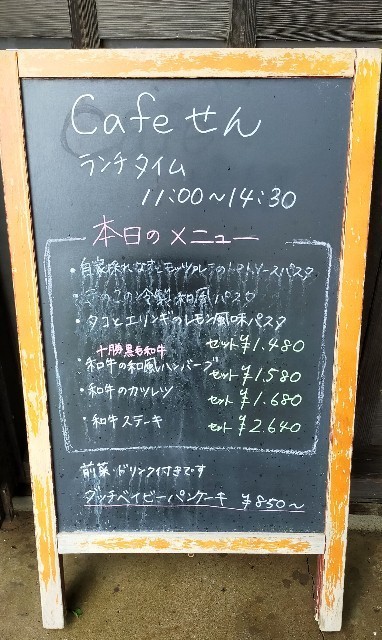 Cafe せん
ランチタイム
11:00～14:30
本日のメニュー
・自家採れなすとモッツァレラのトマトソースパスタ
・きのこの冷製和風パスタ
・タコとエリンギのレモン風味パスタ
セット ¥1.480
十勝黒毛和牛
・和牛の和風ハンバーグ セット ¥1.580
・和牛のカツレツ セット ¥1.680
・和牛ステーキ セット ¥2.640
前菜・ドリンク付きです
ダッチベイビーパンケーキ ¥850～